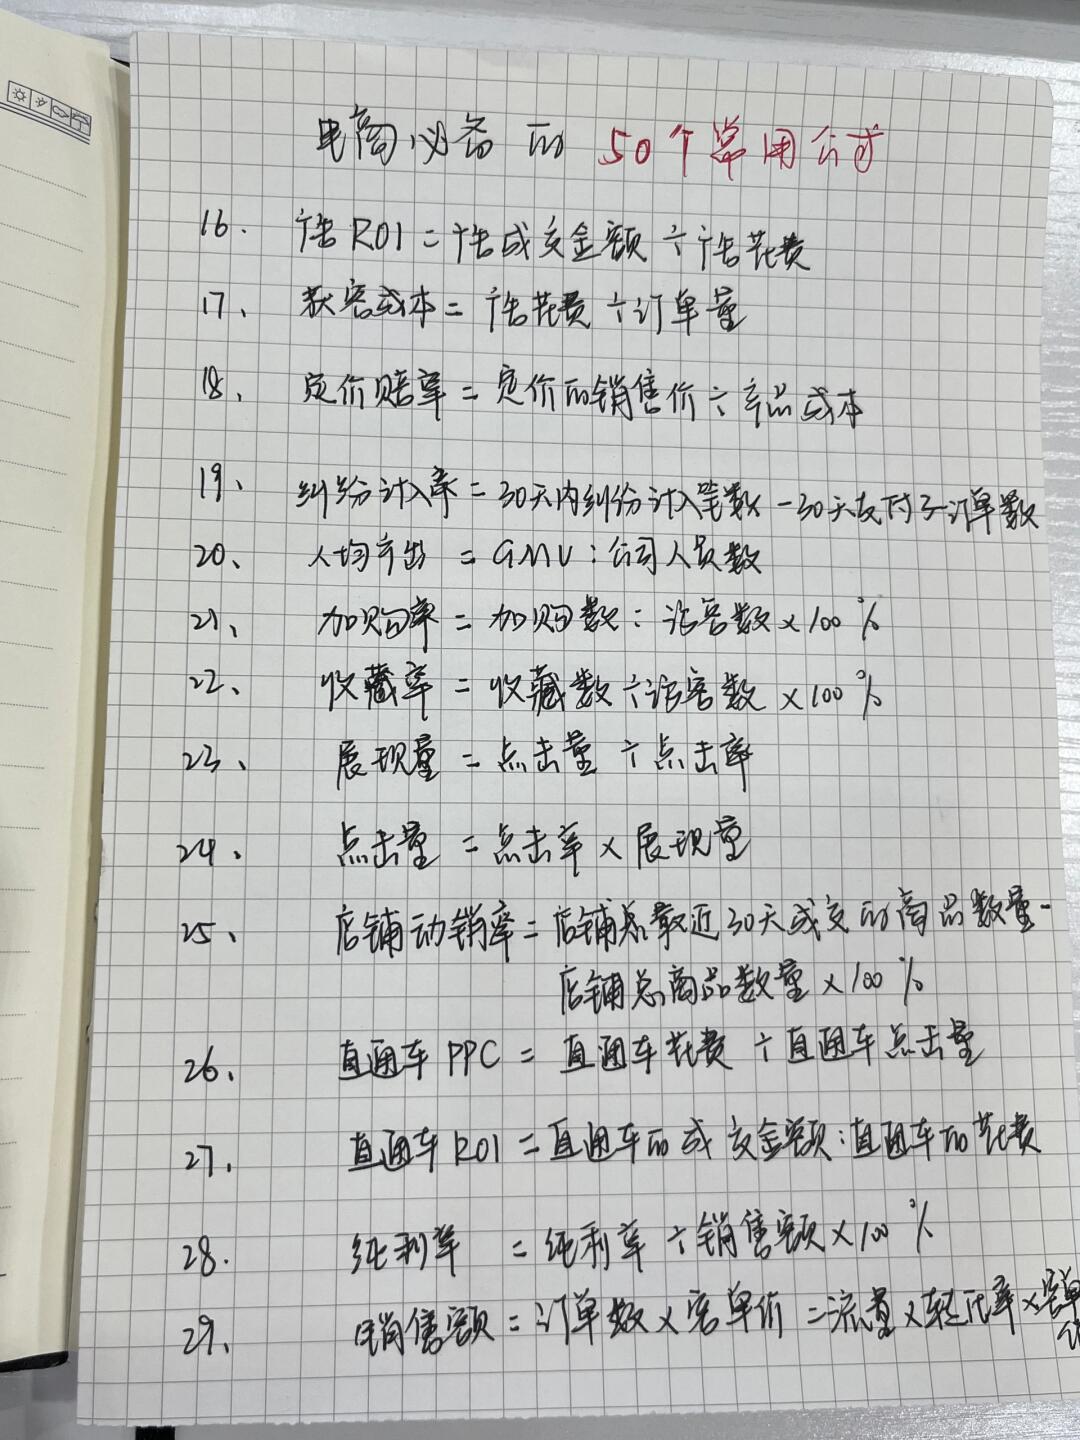 电商必备的 50个常用公式
16. 广告ROI=广告成交金额÷广告花费
17、获客成本=广告花费÷订单量
18、定价赔率=定价的销售价÷产品成本
19、纠纷计入率=30天内纠纷计入笔数-30天支付子订单数
20、人均产出=GMV:公司人员数
21、加购率=加购数:访客数×100%
22、收藏率=收藏数÷访客数×100%
23、展现量=点击量÷点击率
24、点击量=点击率×展现量
25、店铺动销率=店铺总最近30天成交的商品数量-
店铺总商品数量×100%
26、直通车PPC=直通车花费÷直通车点击量
27、直通车ROI=直通车的成交金额:直通车的花费
28. 纯利率=纯利率÷销售额×100%
29、销售额=订单数×客单价=流量×转化率×客单价